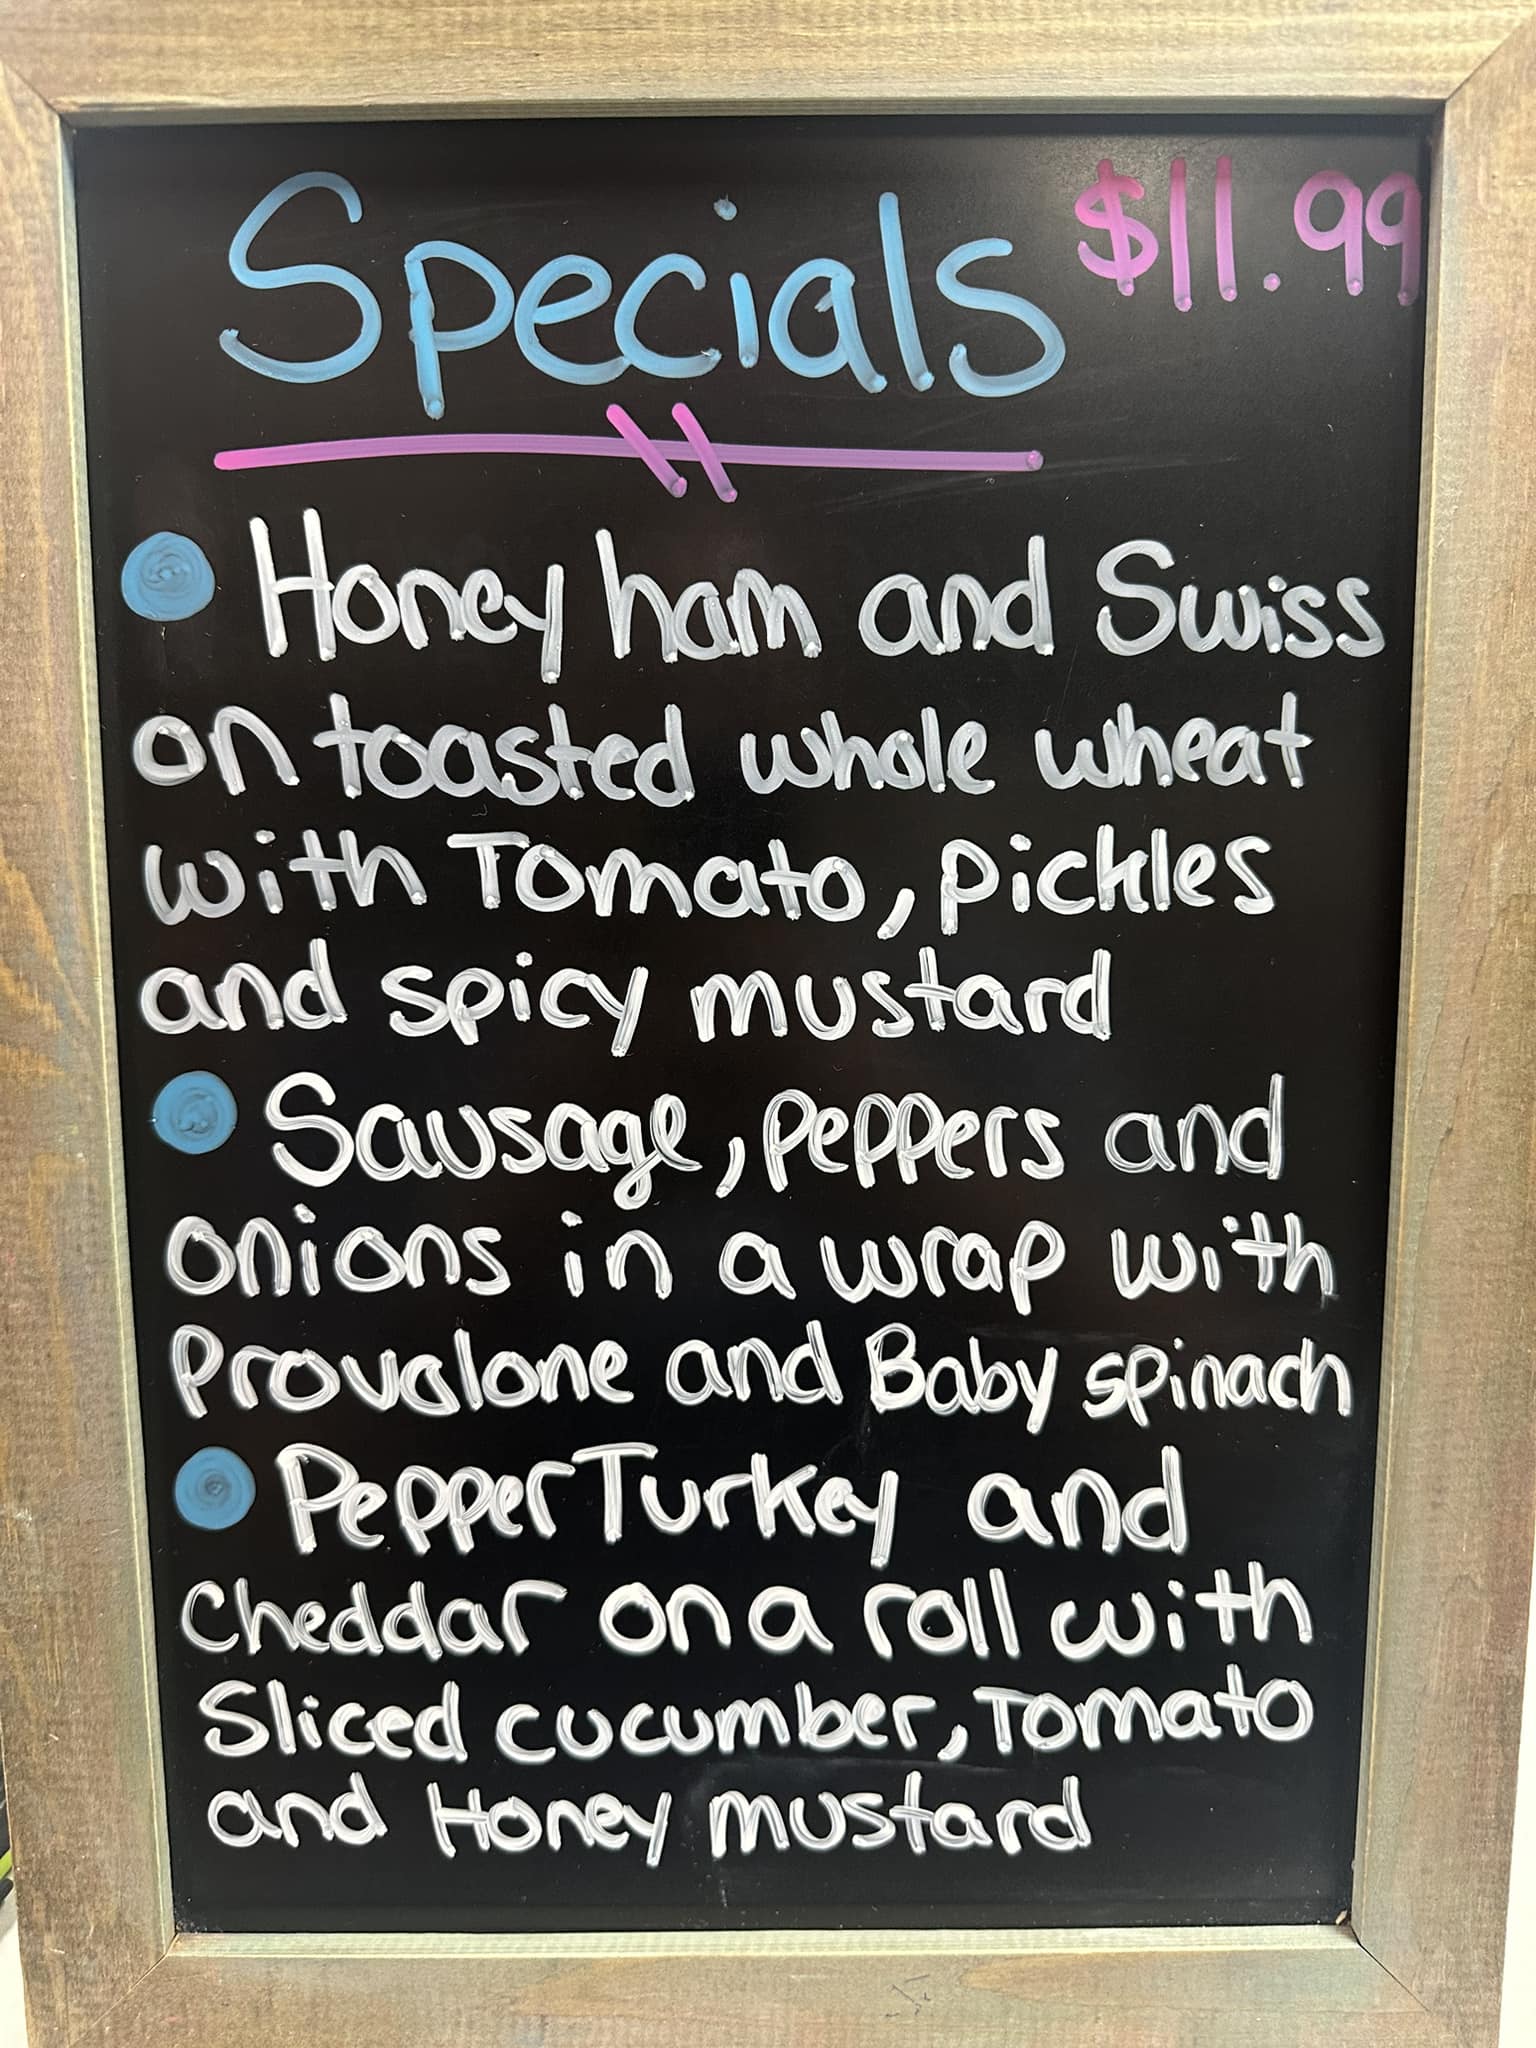 Specials $11.99
Honey ham and Swiss
on toasted whole wheat
with Tomato, pickles
and spicy mustard
Sausage, peppers and
onions in a wrap with
Provalone and Baby spinach
Pepper Turkey and
Cheddar on a roll with
Sliced cucumber, Tomato
and Honey mustard